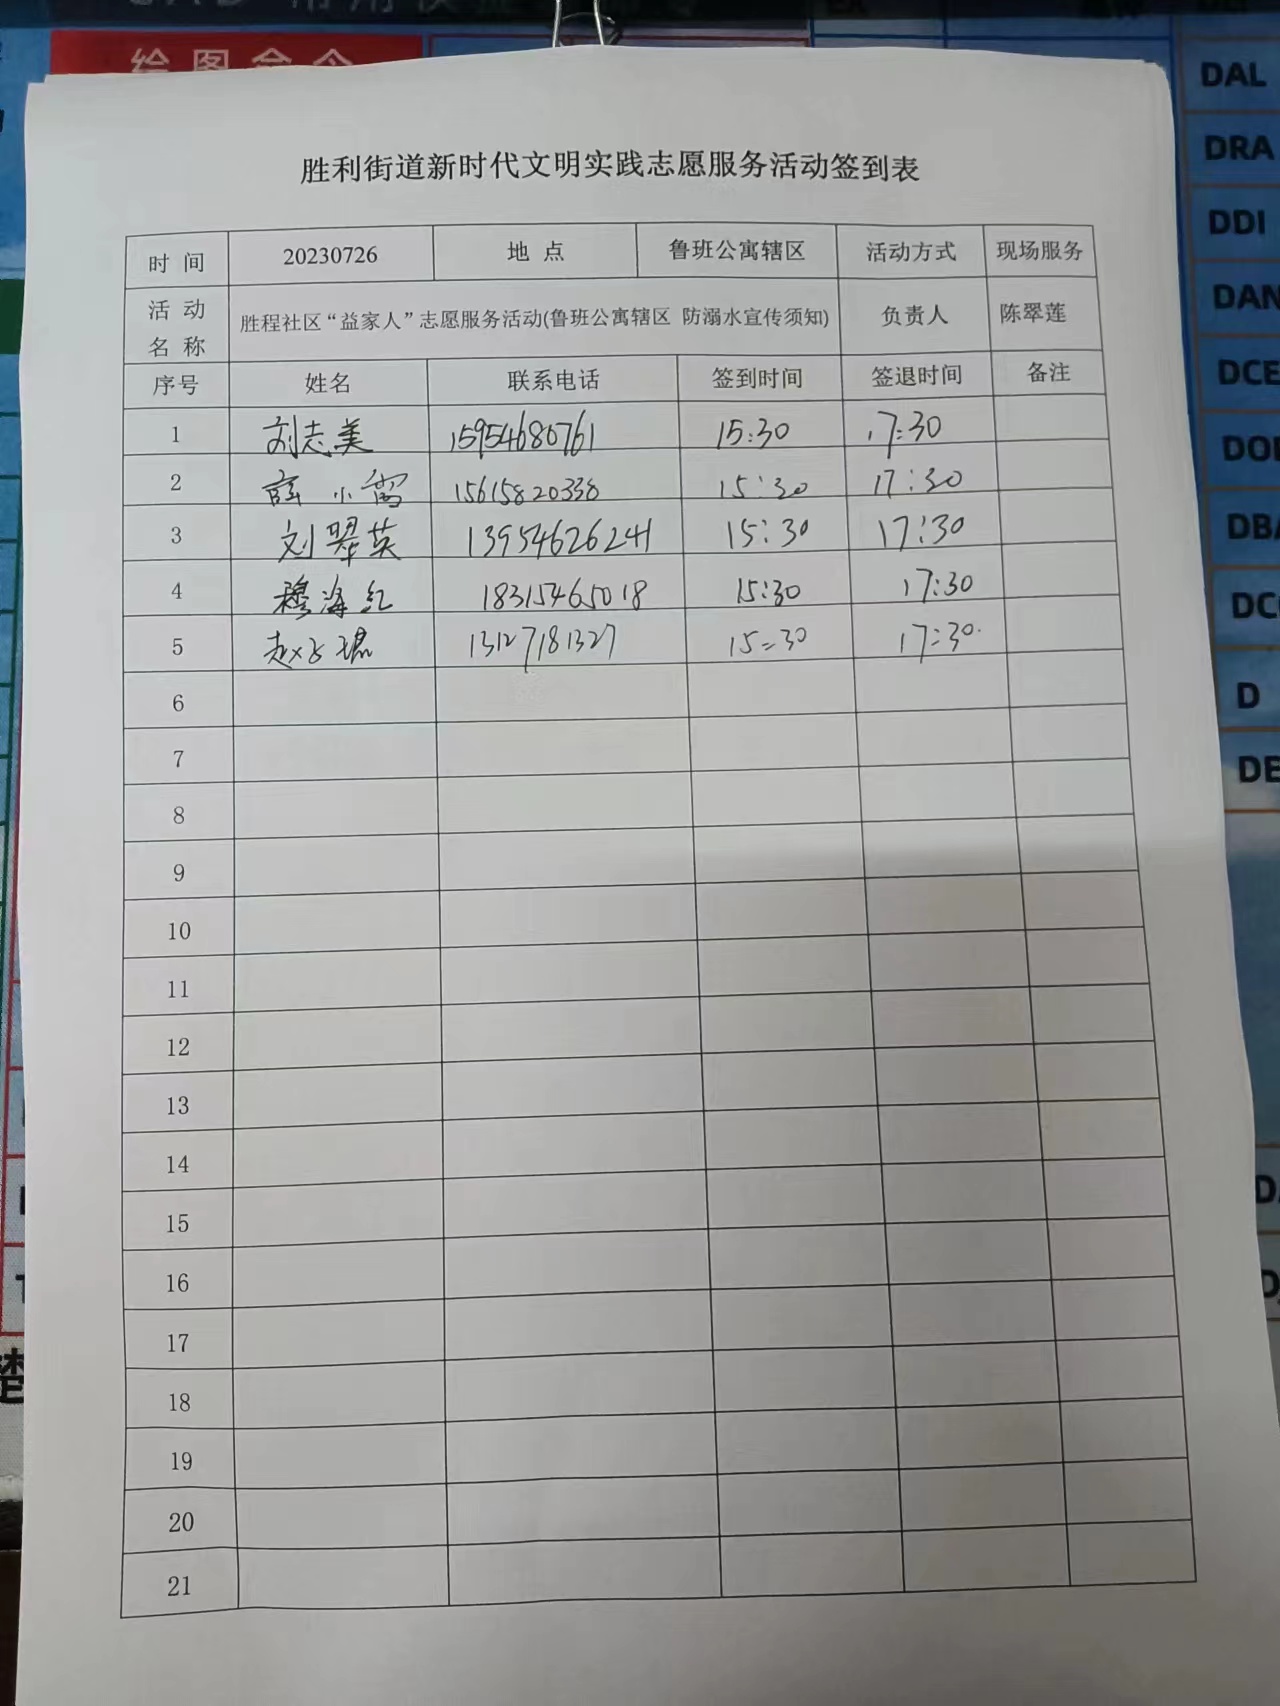 绘图命令
DAL
DRA
DDI
DAN
DCE
D
胜利街道新时代文明实践志愿服务活动签到表
时 间 20230726 地 点 鲁班公寓辖区 活动方式 现场服务
活 动 名 称 胜程社区“益家人”志愿服务活动(鲁班公寓辖区 防溺水宣传须知) 负责人 陈翠莲
序号 姓名 联系电话 签到时间 签退时间 备注
1 刘志美 15954680761 15:30 17:30
2 薛小霞 15615820338 15:30 17:30
3 刘翠英 13954626241 15:30 17:30
4 穆海红 18315465018 15:30 17:30
5 赵 13127181327 15:30 17:30
6
7
8
9
10
11
12
13
14
15
16
17
18
19
20
21